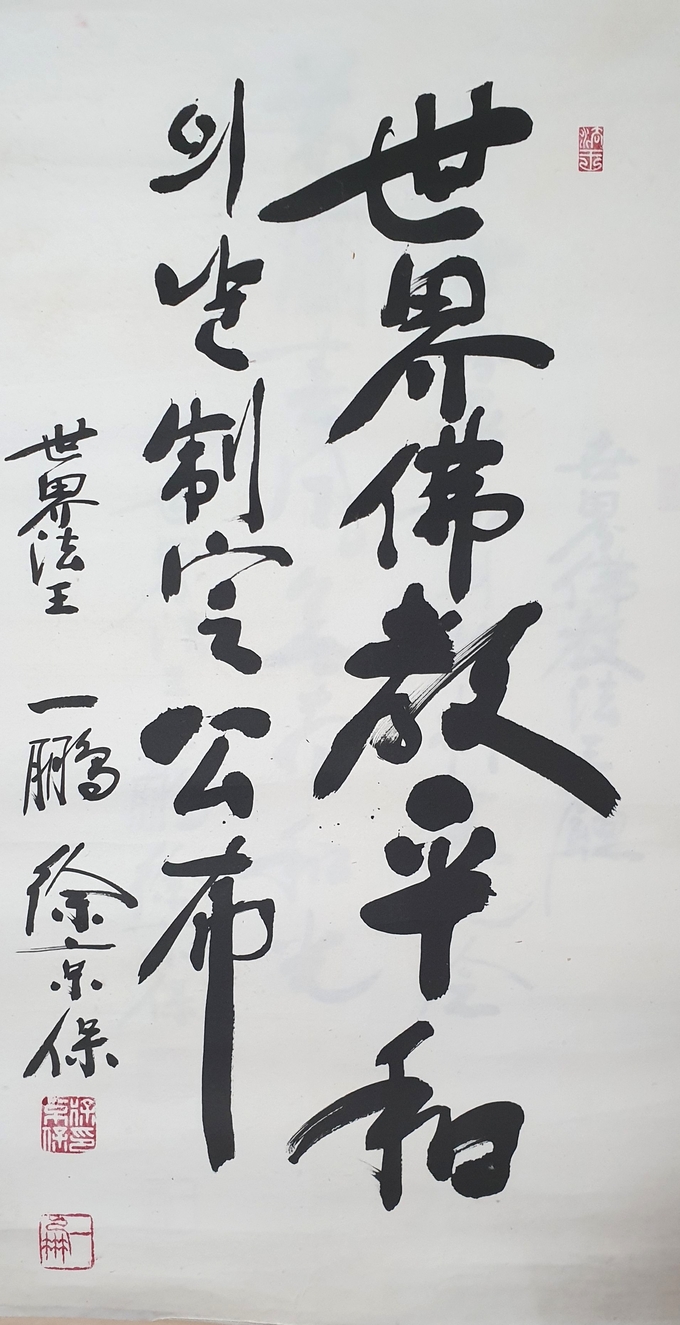 世界佛教平和
의날制定公布
世界法王 一鵬 徐京保